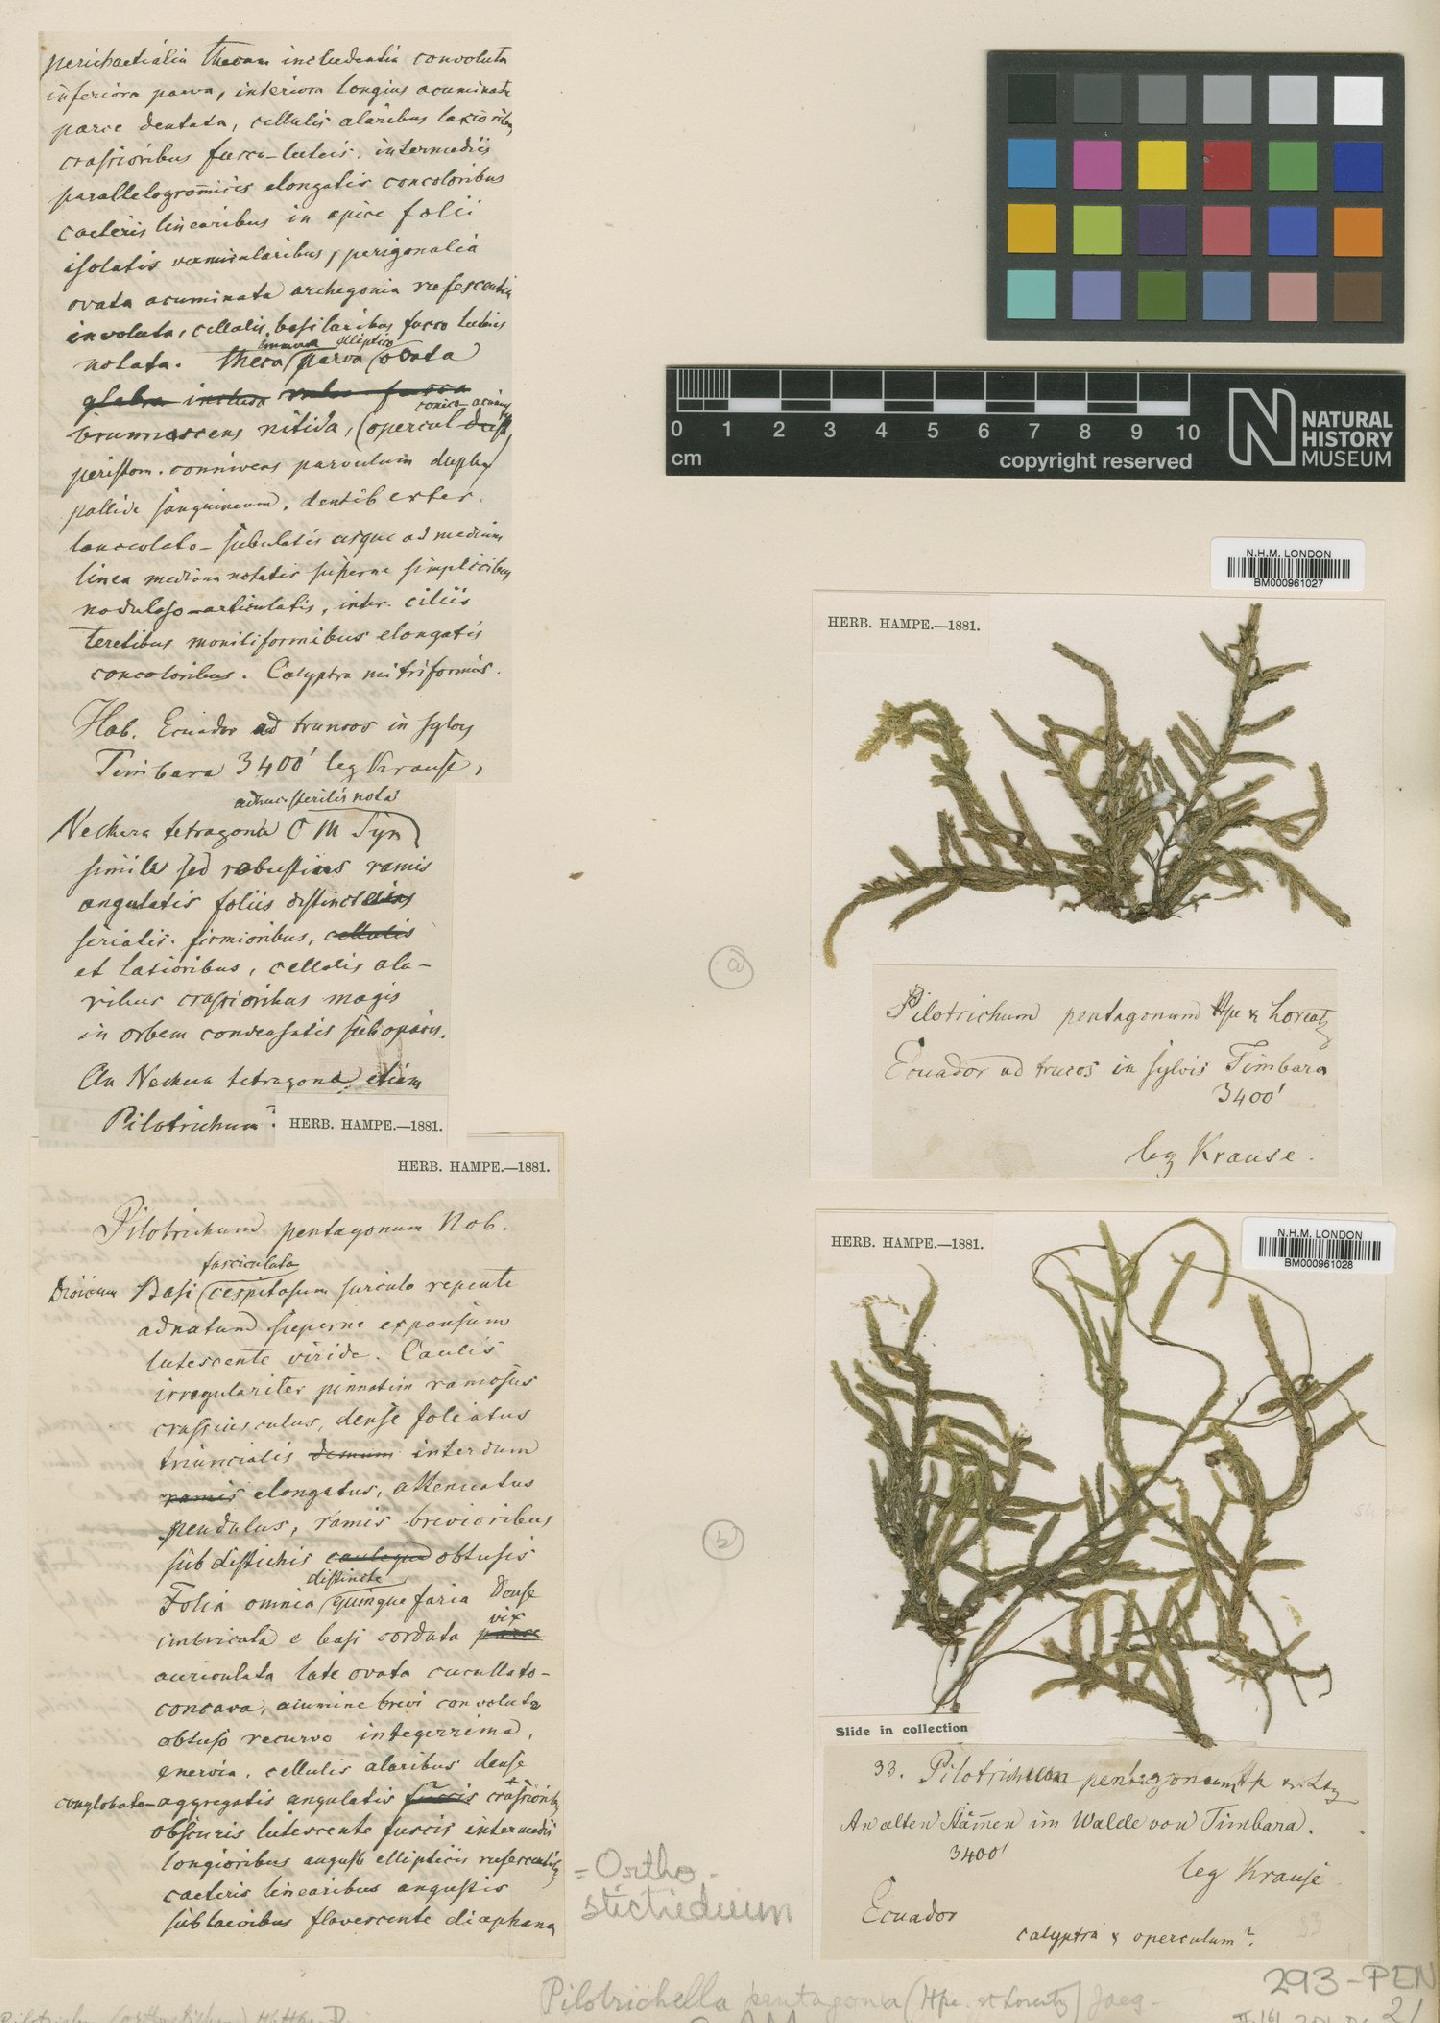 perichaetialia thecam includentia convoluta
inferiora parva, interiora longius acuminata
parce dentata, cellulis alaribus laxioribus
crassioribus fusco-luteis, intermediis
parallelogramicis elongatis concoloribus
caeteris linearibus in apice folii
isolatis vermicularibus, perigonalia
ovata acuminata archegonia rufescentia
involuta, cellulis basilaribus fusco luteis
immersa elliptico
notata. theca parva ovata
glabra inclusa fusca
conico-acum
brunnescens nitida, (opercul
peristom. connivens parvulum duplex
pallide sanguineum, dentib exter.
lanceolato-subulatis usque ad medium
linea mediana notatis superne simplicibus
noduloso-articulatis, inter. ciliis
teretibus moniliformibus elongatis
concoloribus. Calyptra mitriformis.
Hab. Ecuador ad truncos in sylvis
Timbara 3400' leg Krause,
adhuc sterilis nota
Neckera tetragona C M Syn
simile sed robustius ramis
angulatis foliis distinct
seriatis. firmioribus, cellulis
et laxioribus, cellulis ala-
ribus crassioribus magis
in orbem condensatis subopacis.
An Neckera tetragona etiam
Pilotrichum?
HERB. HAMPE.—1881.
HERB. HAMPE.—1881.
Pilotrichum pentagonum Nob.
fasciculata
Dioicum Basi cespitosum surculo repente
adnatum superne expansum
lutescente viride. Caulis
irregulariter pinnatim ramosus
crassiusculus, dense foliatus
triuncialis demum interdum
ramis elongatus, attenuatus
pendulus, ramis brevioribus
subdistichis obtusis
distincte
Folia omnia quinquefaria Dense
vix
imbricata e basi cordata parce
auriculata late ovata cucullato-
concava, acumine brevi convoluta
obtuso recurvo integerrima,
enervia, cellulis alaribus dense
conglobato-aggregatis angulatis fuscis crassioribus
obscuris lutescente fuscis intermediis
longioribus angust ellipticis rufescentibus
caeteris linearibus angustis
sublaevibus flavescente diaphana
= Ortho-
stichidium
cm 0 1 2 3 4 5 6 7 8 9 10
copyright reserved
NATURAL
HISTORY
MUSEUM
N.H.M. LONDON
BM000961027
HERB. HAMPE.—1881.
a
Pilotrichum pentagonum Hpe & Lorentz
Ecuador ad trucos in sylvis Timbara
3400'
leg Krause.
HERB. HAMPE.—1881.
N.H.M. LONDON
BM000961028
b
Slide in collection
33. Pilotrichum pentagonum Hp & Ltz
An alten Stämen im Walde von Timbara.
3400'
leg Krause
Ecuador
calyptra & operculum?
33
293-PEN
21
Pilotrichella pentagona (Hpe. et Lorentz) Jaeg.